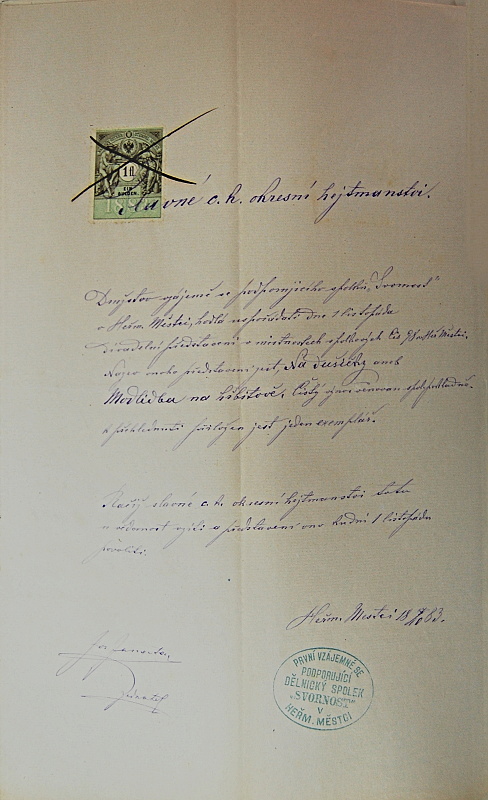 1 fl.
EIN
GULDEN
1881
Slavné c. k. okresní hejtmanství.
vzájemně se podporujícího spolku "Svornost"
v Heřm. Městci, hodlá uspořádati dne 1 listopadu
divadelní představení v místnostech spolkových
představení jest, Na dušičky aneb
Modlidba na hřbitově. Čistý
k přihlednutí přiložen jest jeden exemplář.
Račiž slavné c. k. okresní hejtmanství toto
u vědomost vzíti a představení ono ku dni 1 listopadu
povoliti.
Heřm. Městci 18 83.
PRVNÍ VZÁJEMNĚ SE
PODPORUJÍCÍ
DĚLNICKÝ SPOLEK
"SVORNOST"
V
HEŘM. MĚSTCI